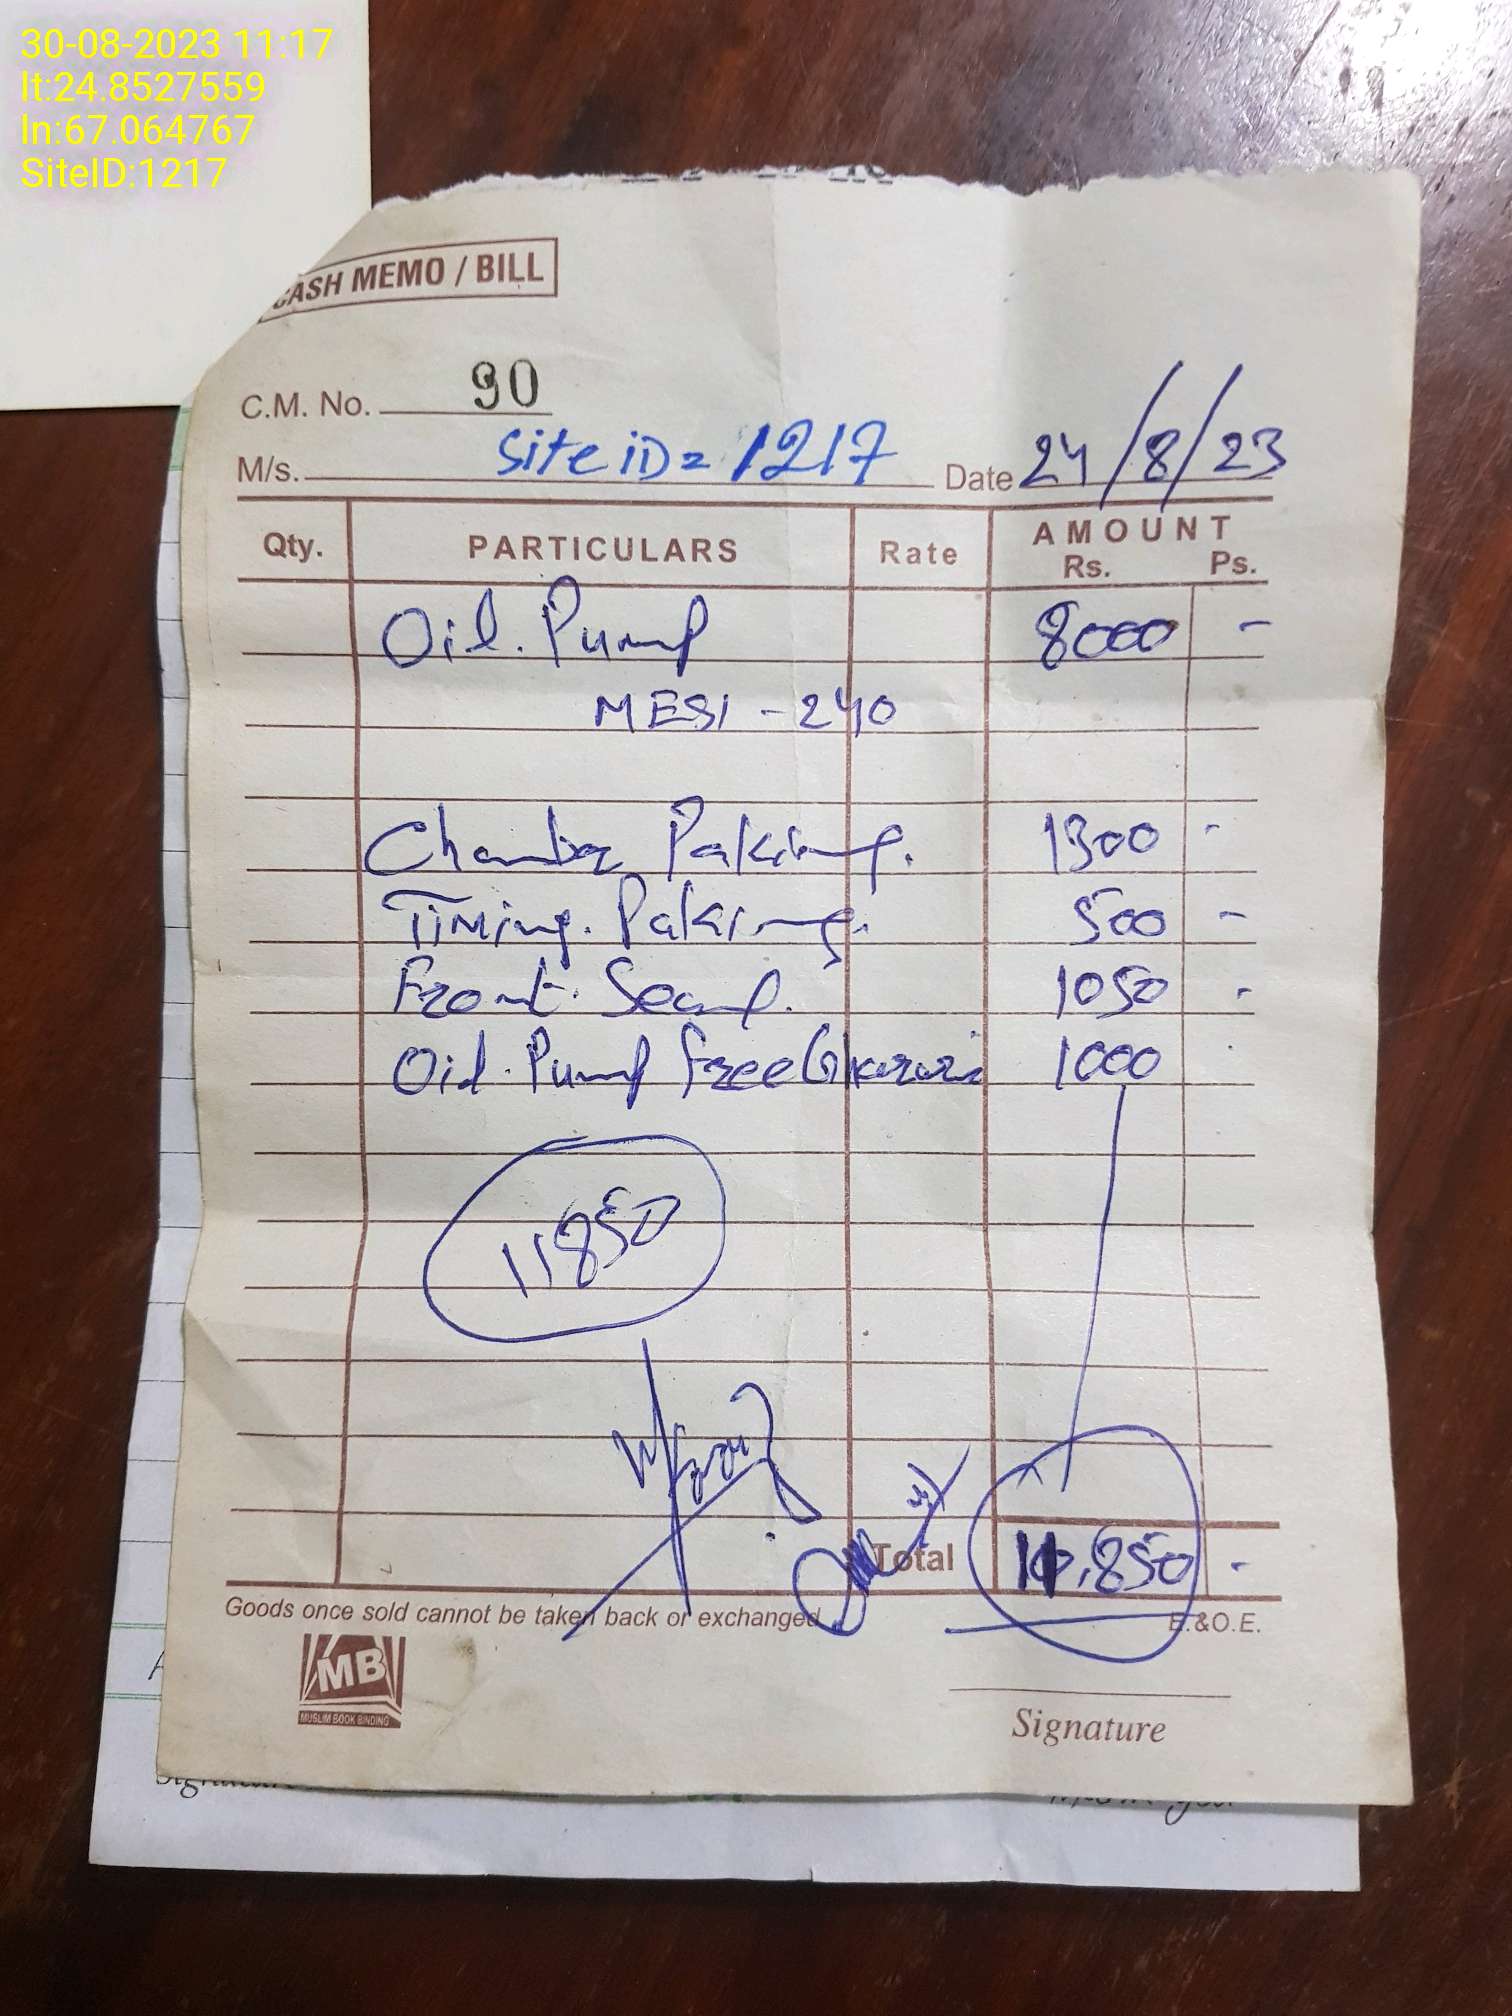 30-08-2023 11:17
lt:24.8527559
ln:67.064767
SiteID:1217
CASH MEMO / BILL
C.M. No. 90
M/s. Site iD = 1217 Date 24/8/23
Qty. PARTICULARS Rate AMOUNT
Rs. Ps.
Oil. Pump 8000 -
MESI - 240
Chamber Paking. 1300 -
Timing. Paking. 500 -
Front. Seal. 1050 -
Oil. Pump free Gkarari 1000
11850
Total 11,850 -
Goods once sold cannot be taken back or exchanged. E.&O.E.
MB
MUSLIM BOOK BINDING
Signature